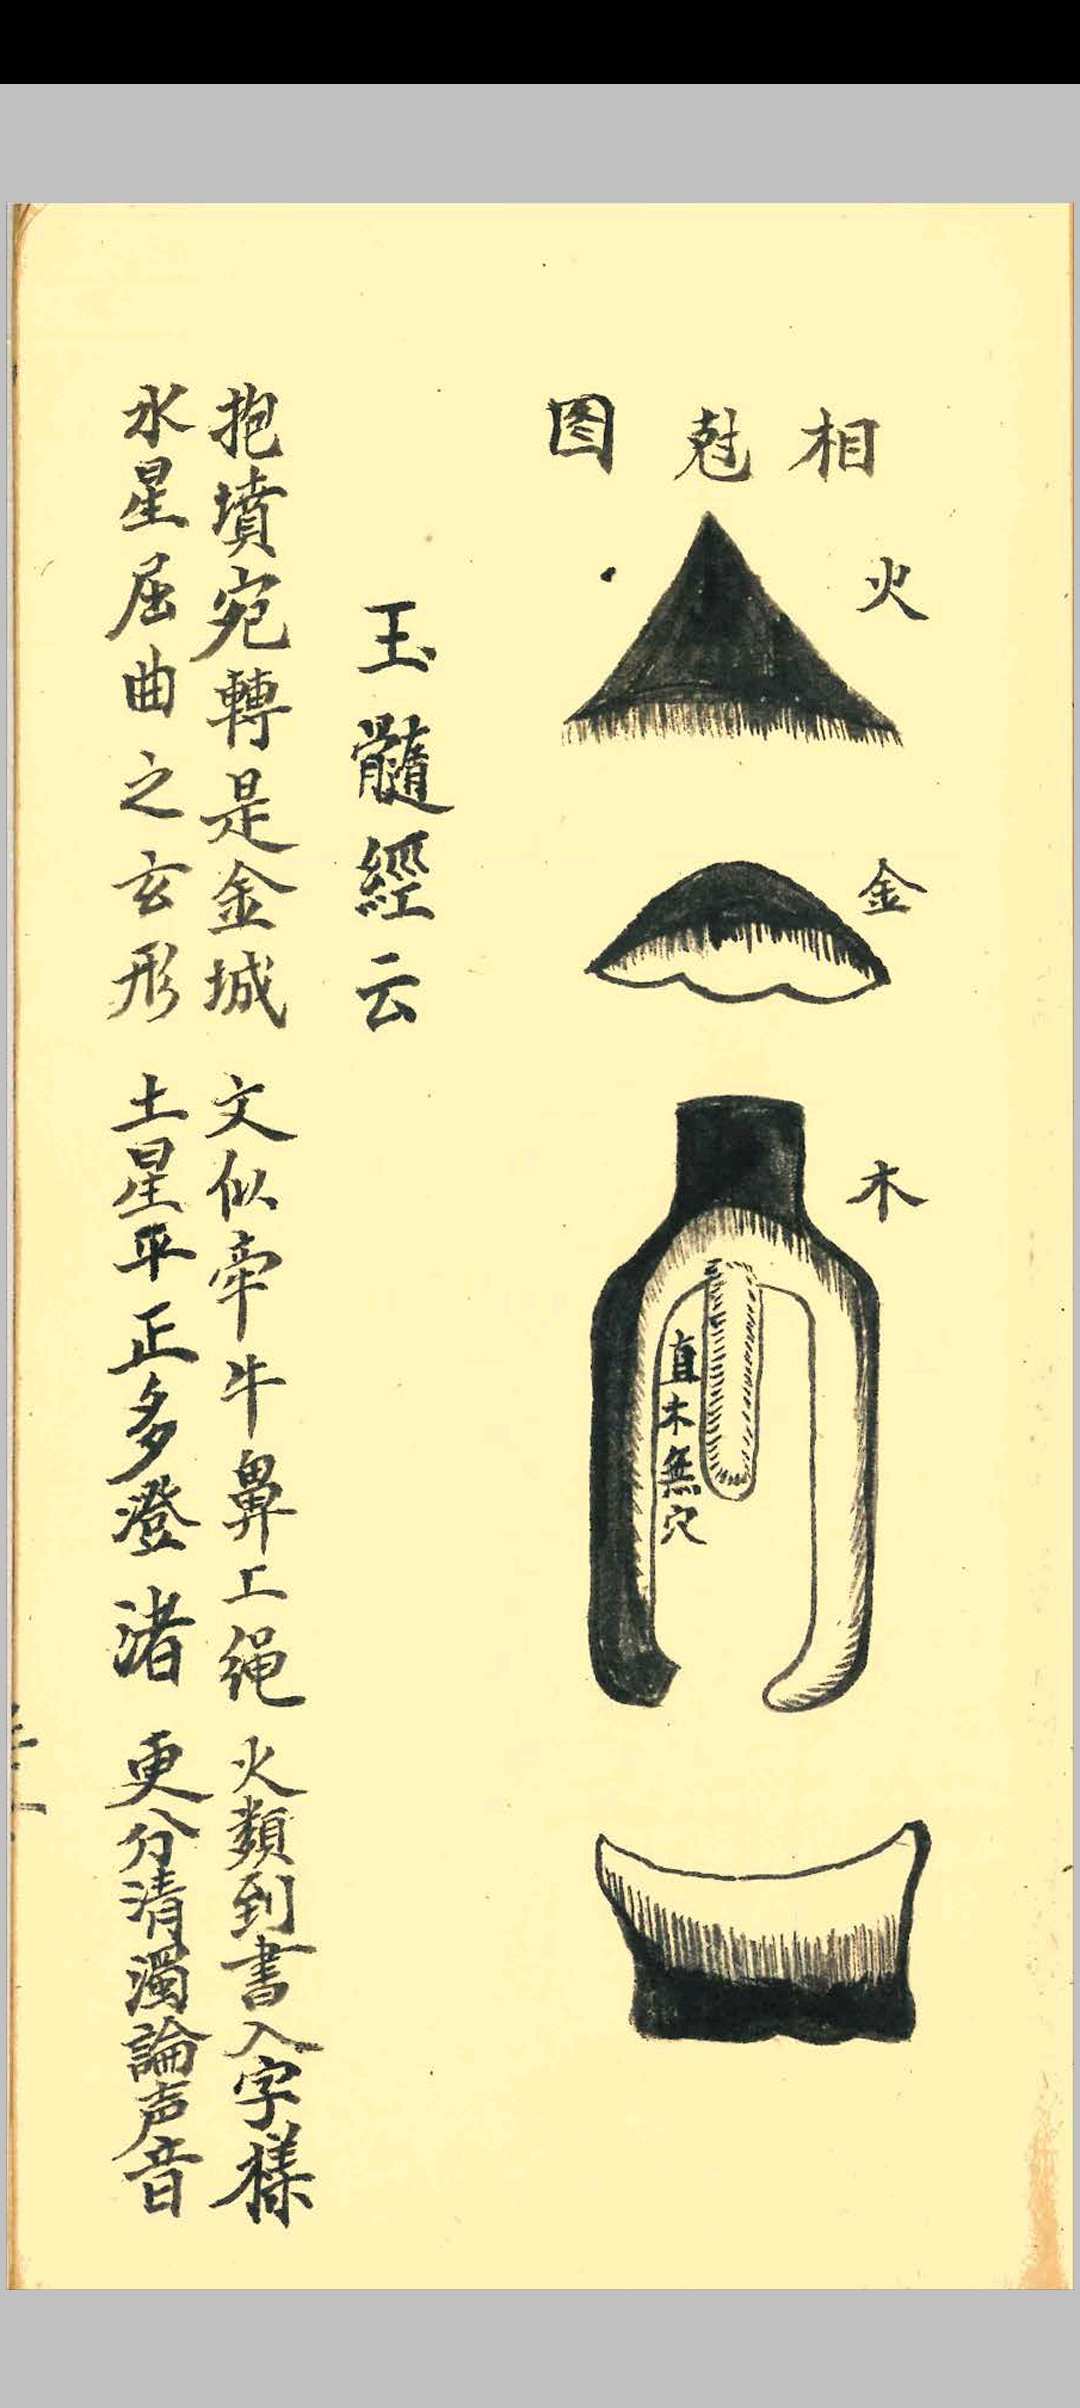 相尅图
火
金
木
直木無穴
玉髓經云
抱墳宛轉是金城　文似牵牛鼻上绳　火類到書入字樣
水星屈曲之玄形　土星平正多澄渚　更分清濁論声音